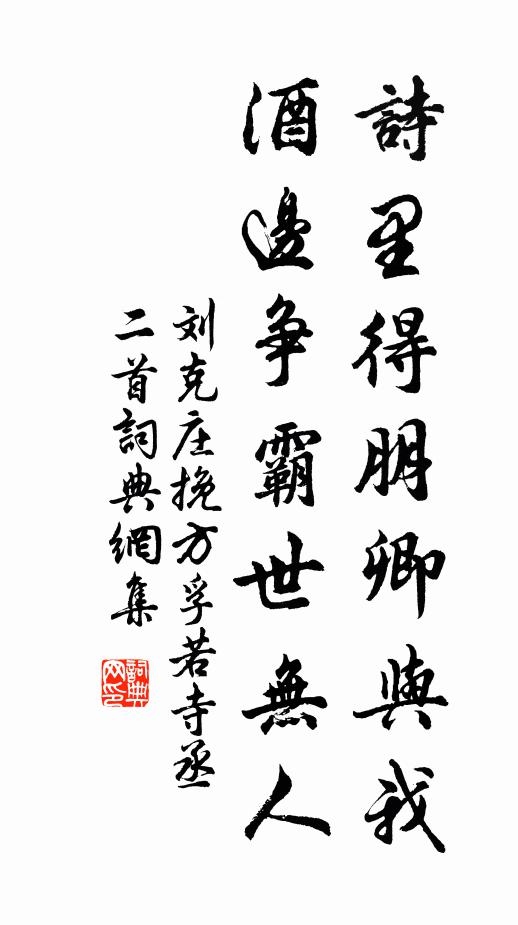 詩里得朋卿與我
酒邊爭霸世無人
刘克庄挽方孚若寺丞
二首詞典網集
詞典网印